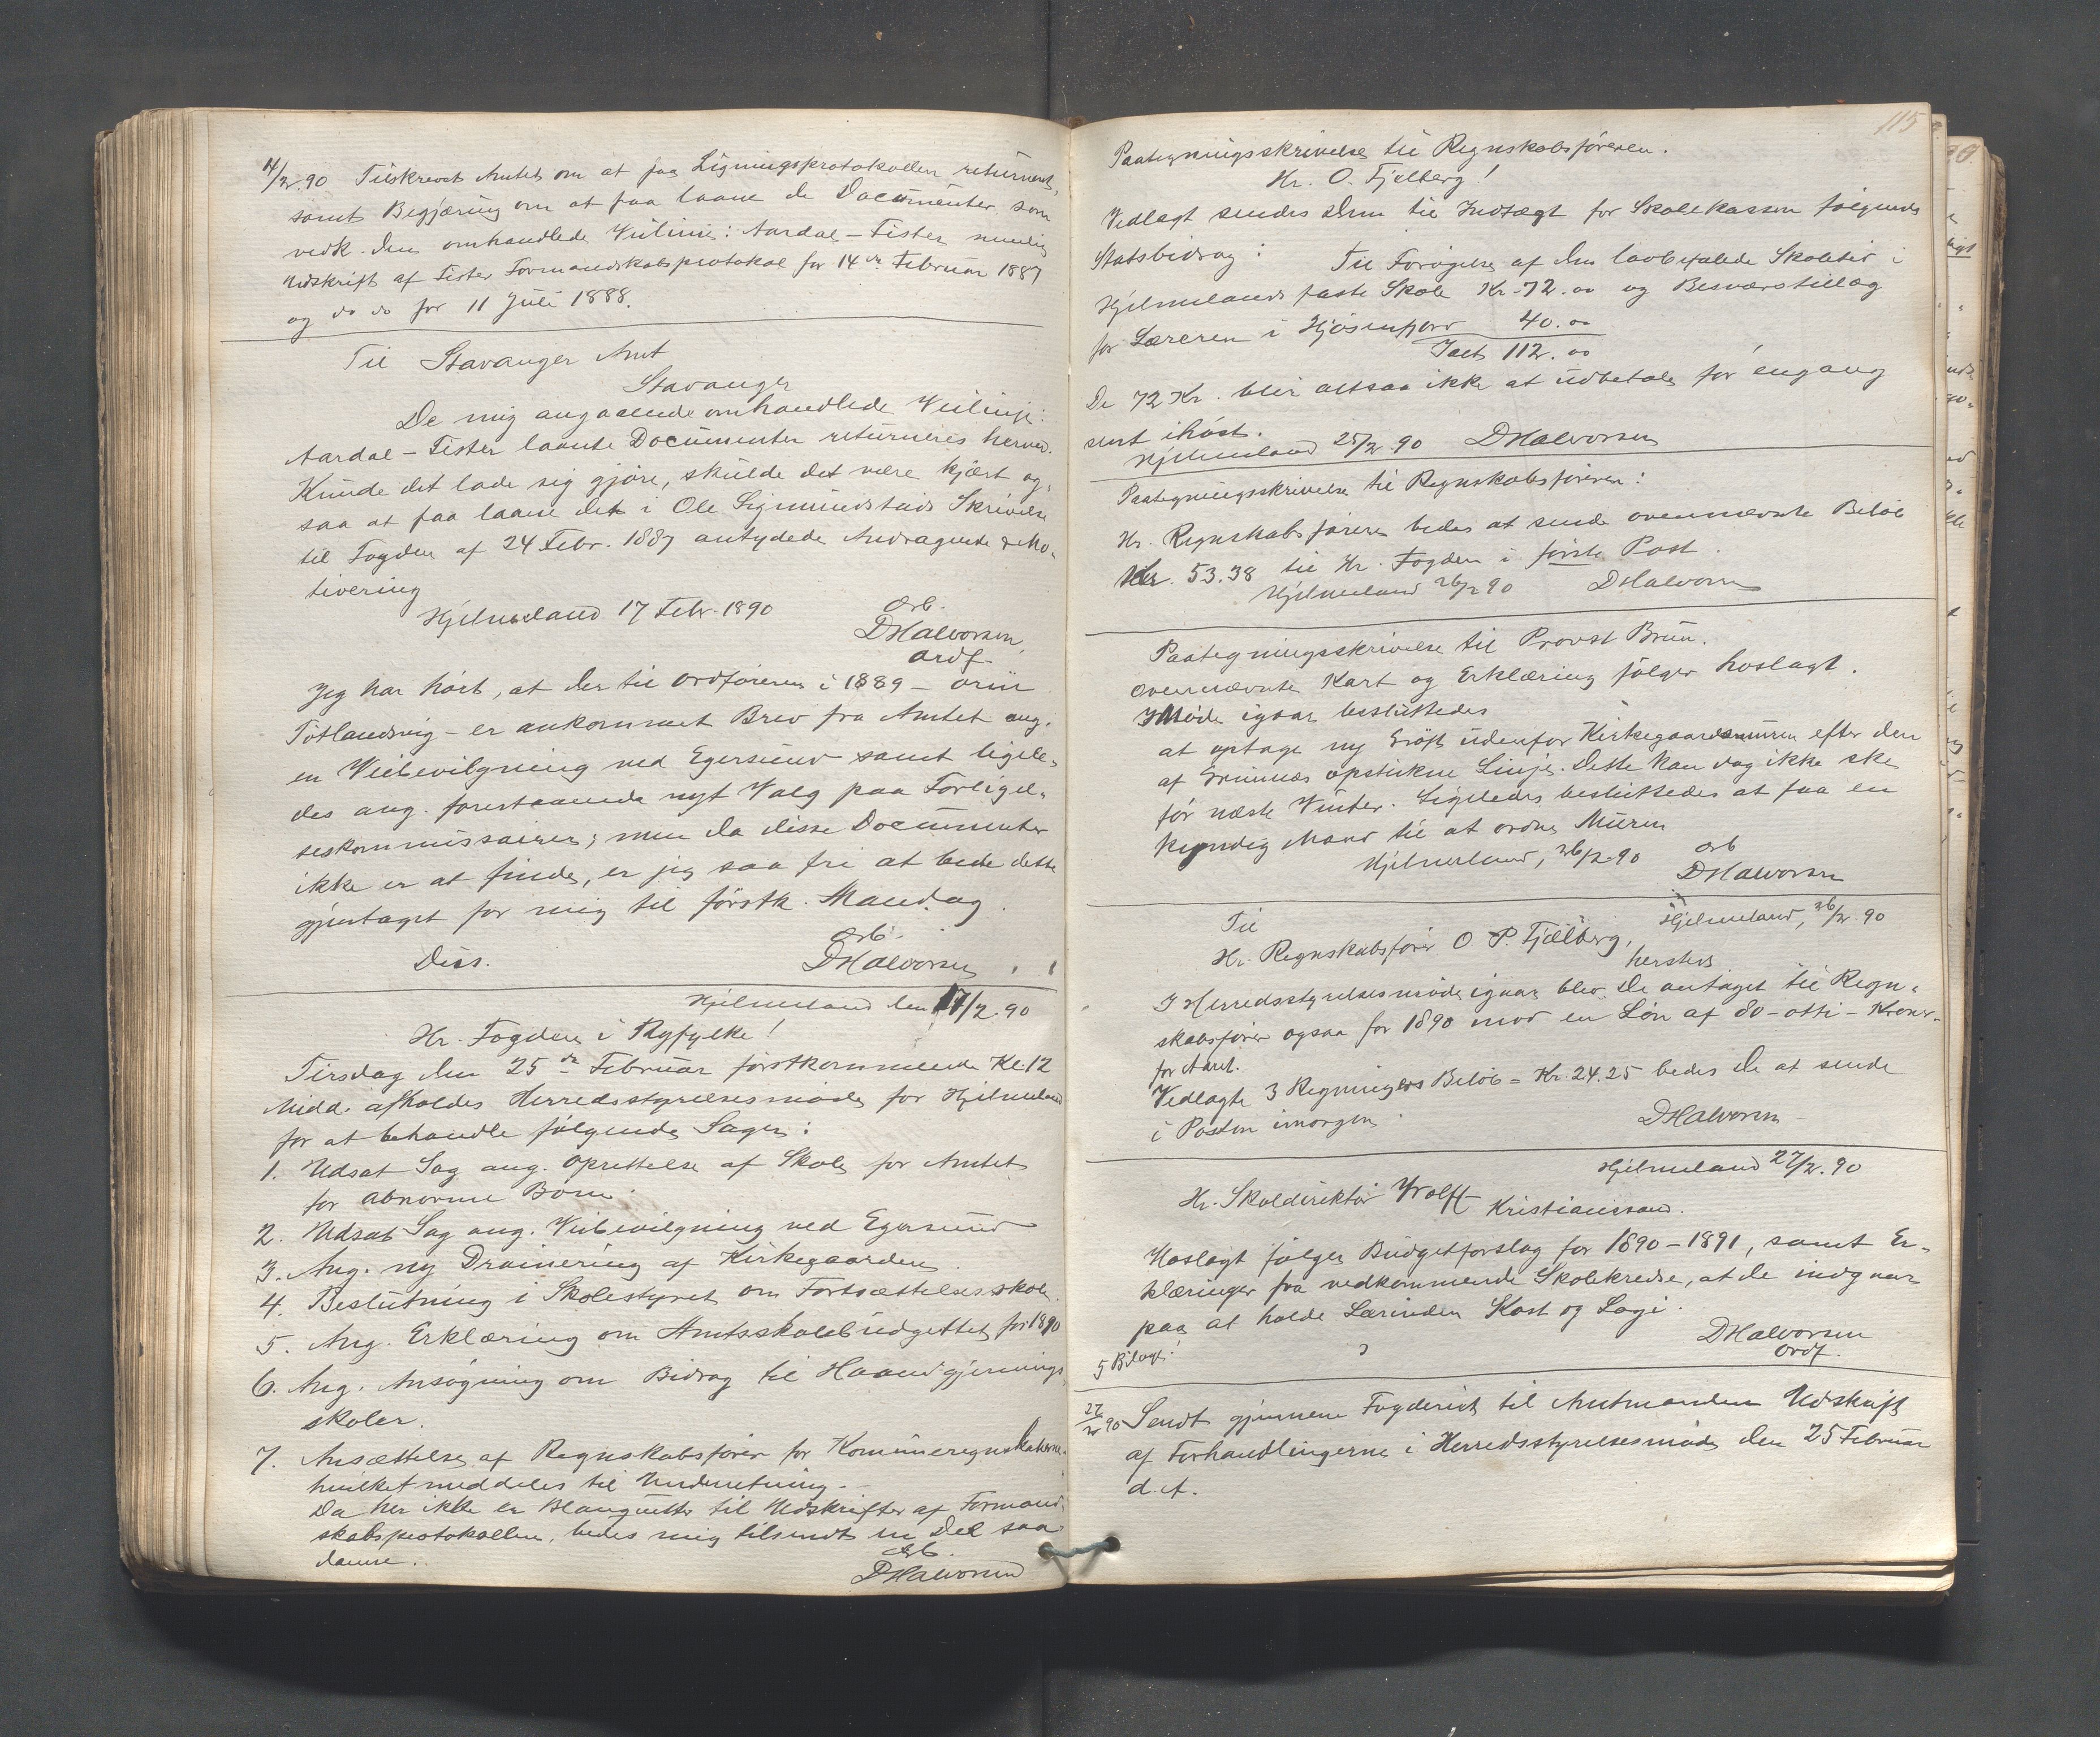 14/2.90 Tilskrevet Amtet om at faa Ligningsprotokollen returneret,
samt Begjæring om at faa laane de Documenter som
vedk. den omhandlede Veilinie: Aardal - Fister nemlig
Udskrift af Fister Formandskabsprotokol for 14de Februar 1887
og do do for 11 Juli 1888.
Til Stavanger Amt
Stavanger
De mig angaaende omhandlede Veilinje:
Aardal - Fister laante Documenter returneres herved.
Kunde det lade sig gjøre, skulde det være kjært og-
saa at faa laane det i Ole Sigmundstads Skrivelse
til Fogden af 24 Febr. 1887 antydede Andragende & Mo-
tivering
Hjelmeland 17 Febr. 1890
Ærb.
DHalvorsen
Ordf.
Jeg har hørt, at der til Ordføreren i 1889 -
Tøtlandsvig - er ankommet Brev fra Amtet ang.
en Veibevilgning ved Egersund samt ligele-
des ang. forestaaende nyt Valg paa Forligel-
seskommissairer; men da disse Documenter
ikke er at finde, er jeg saa fri at bede dette
gjentaget for mig til førstk. Mandag.
Ærb.
DHalvorsen
Hjelmeland den 17/2.90
Hr. Fogden i Ryfylke!
Tirsdag den 25de Februar førstkommende Kl 12
Midd. afholdes Herredsstyrelsesmøde for Hjelmeland
for at behandle følgende Sager:
1. Udsat Sag ang. Oprettelse af Skole for Amtet
for abnorme Børn.
2. Udsat Sag ang. Veibevilgning ved Egersund
3. Ang. ny Drainering af Kirkegaarden.
4. Beslutning i Skolestyret om Fortsættelsesskole.
5. Ang. Erklæring om Amtsskolebudgettet for 1890
6. Ang. Ansøgning om Bidrag til Haandgjernings-
skoler.
7. Ansættelse af Regnskabsfører for Komuneregnskaberne.
hvilket meddeles til Underretning.
Da her ikke er Blanquetter til Udskrifter af Formand-
skabsprotokollen, bedes mig tilsendt en Del saa-
danne.
Ærb.
DHalvorsen
115
Paategningsskrivelse til Regnskabsføreren.
Hr. O. Fjelberg!
Vedlagt sendes Dem til Indtægt for Skolekassen følgende
Statsbidrag: Til Forøgelse af den lovbefalede Skoletid i
Hjelmelands faste Skole Kr. 72.00 og Besværstillæg
for Læreren i Hjøsenfjord 40.00
Ialt 112.00
De 72 Kr. blir altsaa ikke at udbetale før engang
sent ihøst.
Hjelmeland 25/2 90 DHalvorsen
Paategningsskrivelse til Regnskabsføreren:
Hr. Regnskabsføreren bedes at sende ovennævnte Beløb
Kr. 53.38 til Hr. Fogden i første Post.
Hjelmeland 26/2 90 DHalvorsen
Paategningsskrivelse til Provst Brun.
Ovennævnte Kart og Erklæring følger hoslagt.
I Møde igaar besluttedes
at optage ny Grøft udenfor Kirkegaardsmuren efter den
af Grimnæs opstukne Linje. Dette kan dog ikke ske
før næste Vinter. Ligeledes besluttedes at faa en
kyndig Mand til at ordne Muren
Hjelmeland, 26/2.90
Ærb
DHalvorsen
Til Hjelmeland, 26/2.90
Hr. Regnskabsfører O. P. Fjelberg,
hersteds
I Herredsstyrelsesmøde igaar blev De antaget til Regn-
skabsfører ogsaa for 1890 mod en Løn af 80 - otti - Kroner
for Aaret.
Vedlagte 3 Regningers Beløb = Kr. 24.25 bedes De at sende
i Posten imorgen.
DHalvorsen
Hjelmeland 27/2.90
Hr. Skoledirektør Wolff
Kristianssand.
Hoslagt følger Budgetforslag for 1890-1891, samt Er-
klæringer fra vedkommende Skolekredse, at de indgaar
paa at holde Lærinden Kost og Logi.
DHalvorsen
Ordf.
5 Bilage!
27/2 90 Sendt gjennem Fogderiet til Amtmanden Udskrift
af Forhandlingerne i Herredsstyrelsesmøde den 25 Februar
d.A.